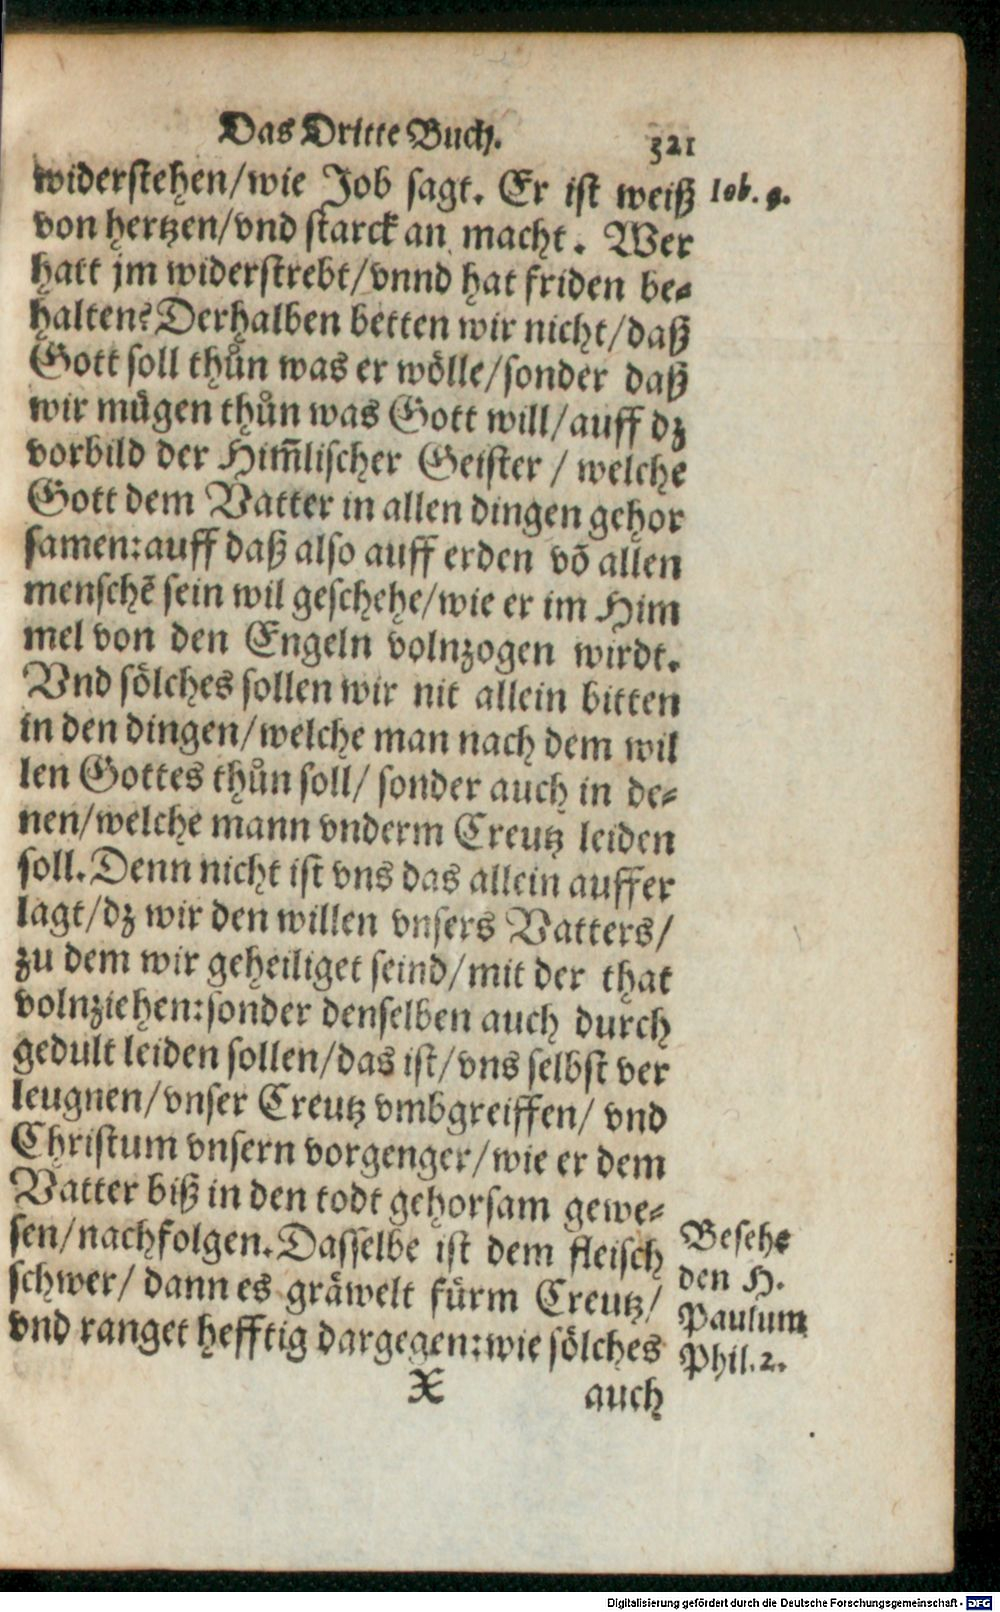 Das Dritte Buch. 321
widerstehen/wie Job sagt. Er ist weiß Iob. 9.
von hertzen/vnd starck an macht. Wer
hatt jm widerstrebt/vnnd hat friden be⸗
halten? Derhalben betten wir nicht/daß
Gott soll thůn was er wölle/sonder daß
wir mügen thůn was Gott will/auff dz
vorbild der Him̃lischer Geister / welche
Gott dem Vatter in allen dingen gehor
samen:auff daß also auff erden võ allen
menschẽ sein wil geschehe/wie er im Him
mel von den Engeln volnzogen wirdt.
Vnd sölches sollen wir nit allein bitten
in den dingen/welche man nach dem wil
len Gottes thůn soll/ sonder auch in de⸗
nen/welche mann vnderm Creutz leiden
soll. Denn nicht ist vns das allein auffer
lagt/dz wir den willen vnsers Vatters/
zu dem wir geheiliget seind/mit der that
volnziehen:sonder denselben auch durch
gedult leiden sollen/das ist/vns selbst ver
leugnen/vnser Creutz vmbgreiffen/ vnd
Christum vnsern vorgenger/wie er dem
Vatter biß in den todt gehorsam gewe⸗
sen/nachfolgen. Dasselbe ist dem fleisch
schwer/ dann es gräwelt fürm Creutz/
vnd ranget hefftig dargegen:wie sölches
Besehe
den H.
Paulum
Phil. 2.
X auch
Digitalisierung gefördert durch die Deutsche Forschungsgemeinschaft - DFG